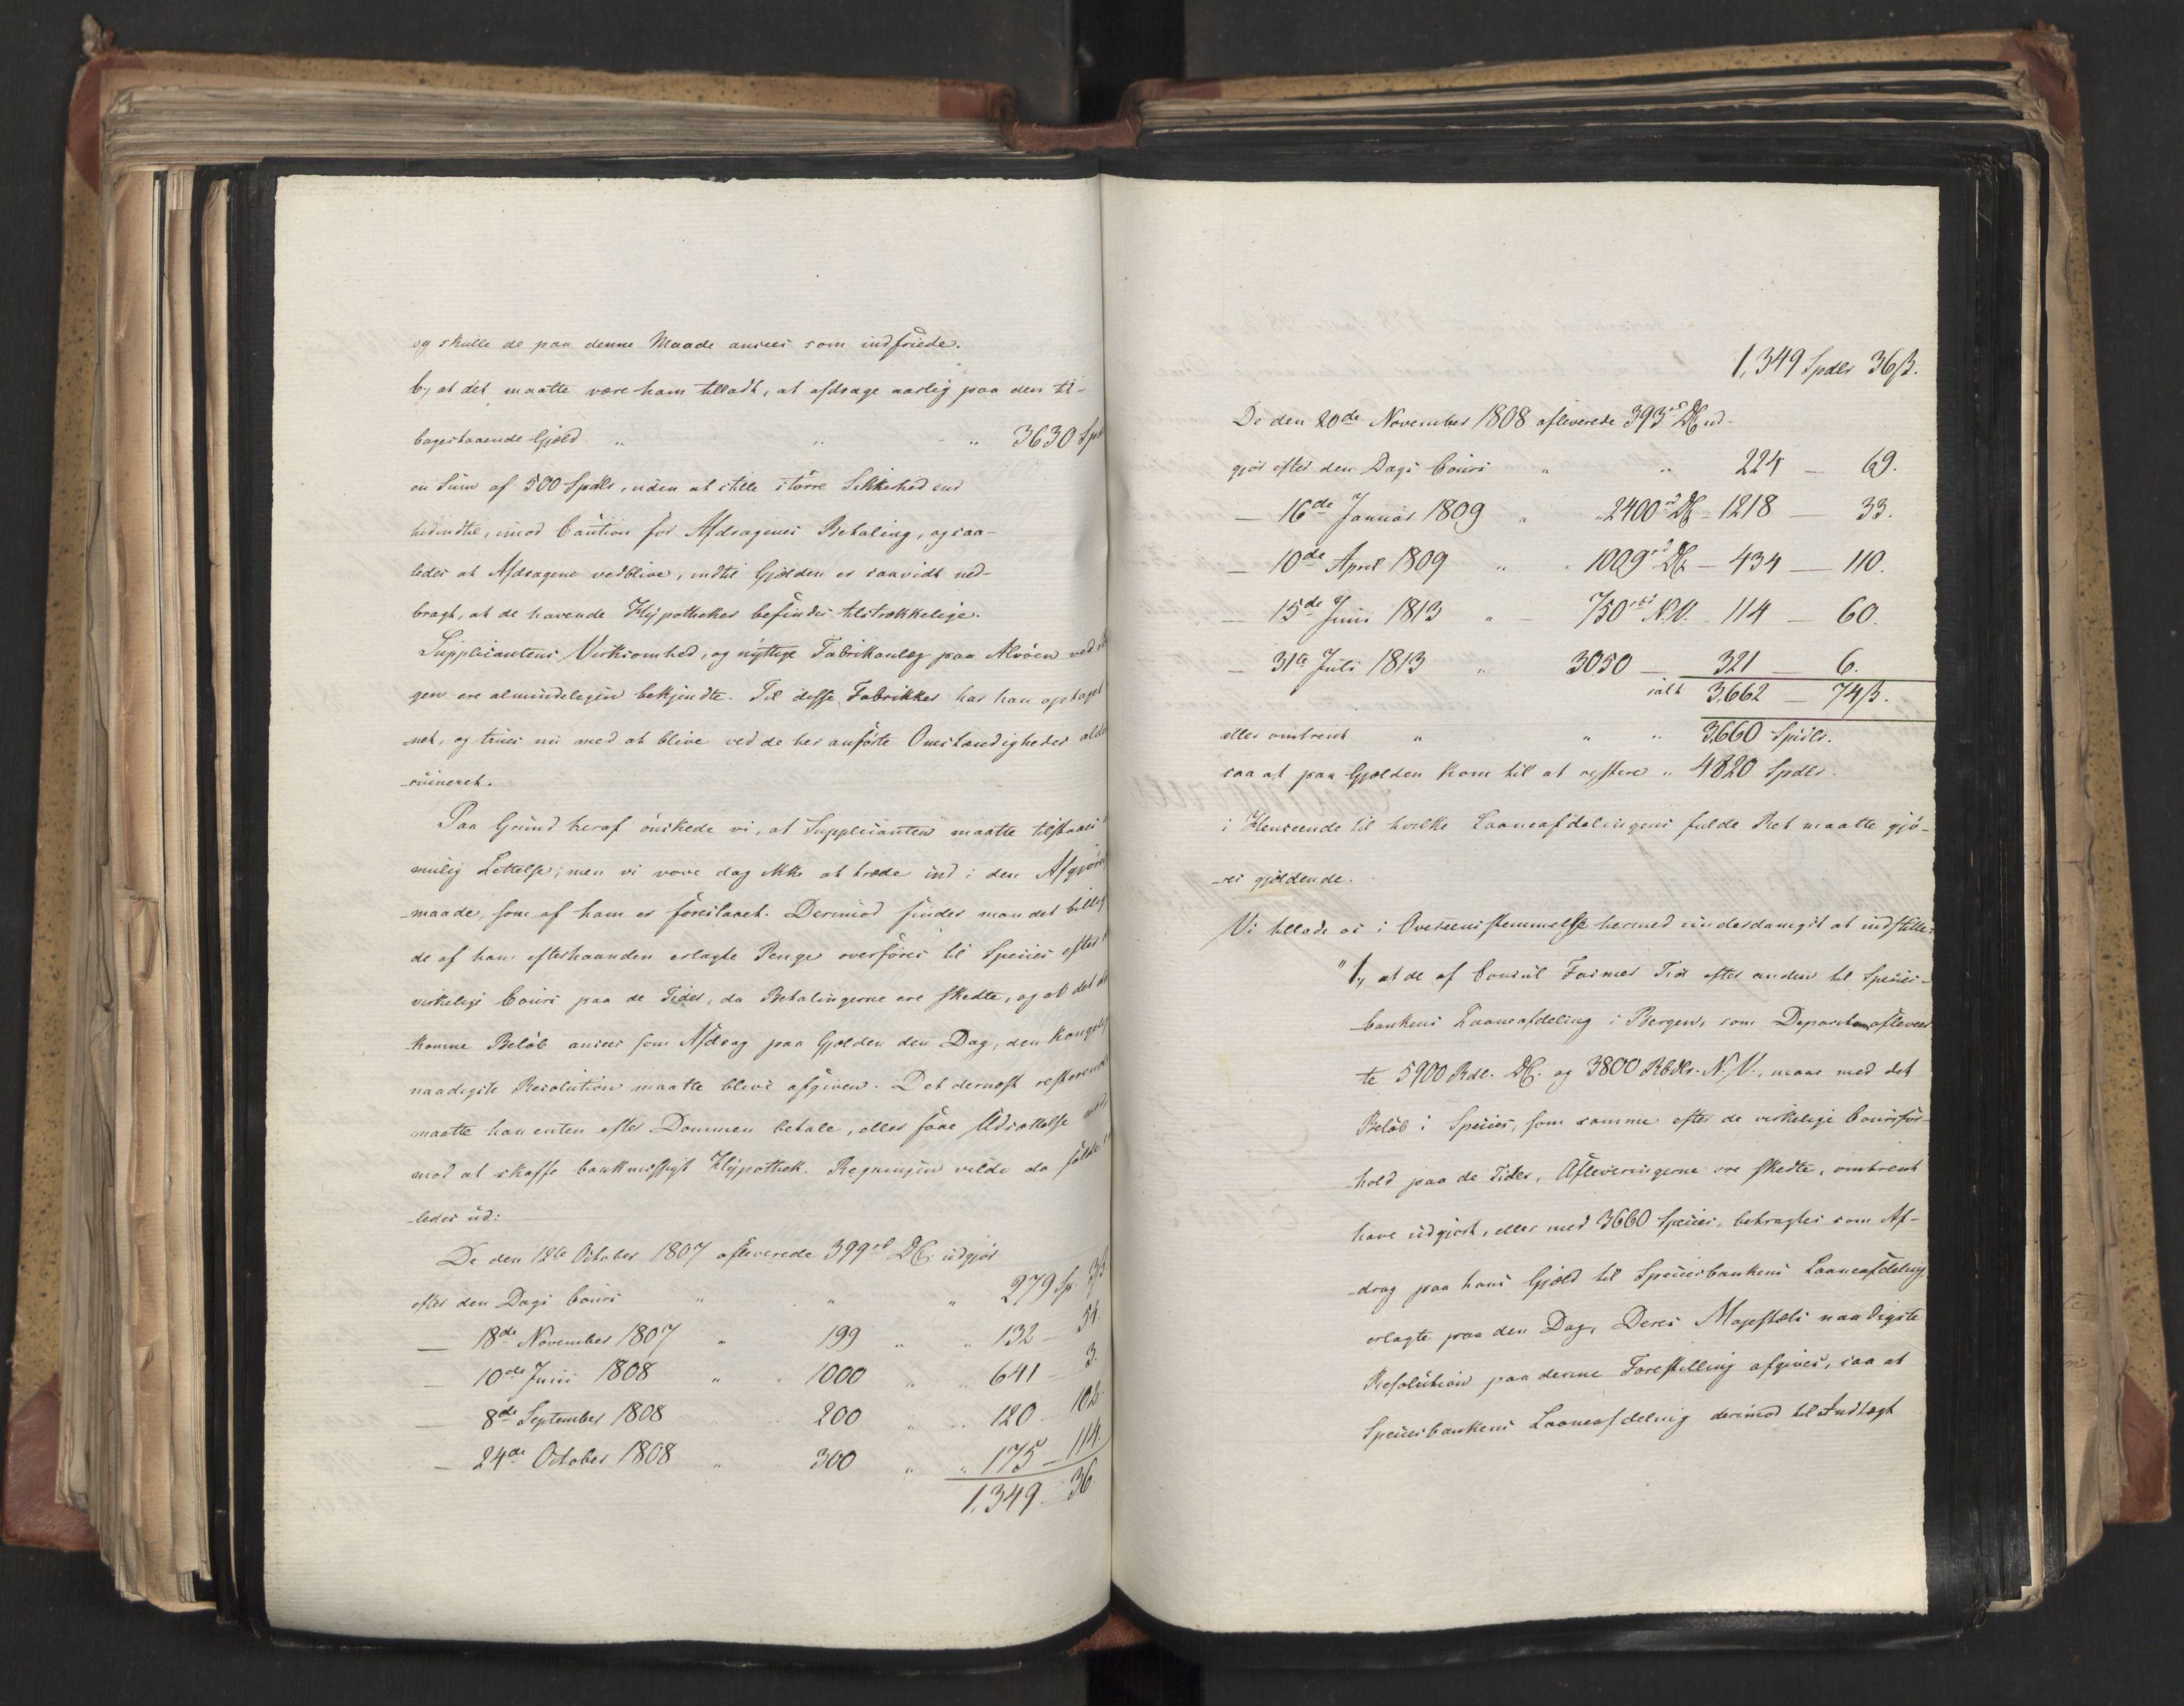 og skulle de paa denne Maade ansees som indfriede.
b, at det maatte være ham tilladt, at afdrage aarlig paa den til-
bagestaaende Gjæld " " " 3630 Spd
en Sum af 500 Spdlr, uden at stille større Sikkerhed end
hidindtil, imod Caution for Afdragenes Betaling, og saa-
ledes at Afdragene vedblive, indtil Gjælden er saavidt ned-
bragt, at de havende Hypotheker befindes tilstrækkelige.
Supplicantens Virksomhed, og nyttige Fabrikanlæg paa Alvøen ved
gen ere almindeligen bekjendte. Til disse Fabrikker har han optaget
net, og trues nu med at blive ved de her anførte Omstændigheder
ruineret.
Paa Grund heraf ønskede vi, at Supplicanten maatte tilstaaes
mulig Lettelse; men vi vove dog ikke at træde ind i den Afgjørel
-maade, som af ham er foreslaaet. Derimod finder man det billigt
de af ham efterhaanden erlagte Penge overføres til Species efter
virkelige Cours paa de Tider, da Betalingerne ere skedte, og at det
komne Beløb ansees som Afdrag paa Gjælden den Dag, den Kongelig
naadigste Resolution maatte blive afgiven. Det dernæst resterende
maatte han enten efter Dommen betale, eller faae Udsættelse med,
mod at skaffe bankmessigt Hypothek. Regningen vilde da falde
-ledes ud:
De den 12te October 1807 afleverede 399 rd DC. udgjør
efter den Dags Cours " " " 279 Sp. 3ß
— 18de November 1807 " 199 " " 132 — 54.
— 10de Junii 1808 " 1000 " " 641 — 3.
— 8de September 1808 200 " 120 — 102.
— 24de October 1808 " 300 " " 175 — 114.
1,349 — 36.
1,349 Spdlr 36ß.
De den 20de November 1808 afleverede 393 rd DC ud-
gjør efter den Dags Cours " " 224 — 69.
— 16de Januar 1809 " 2400 rd DC — 1218 — 33.
— 10de April 1809 " 1009 rd DC — 434 — 110.
— 15de Junii 1813 " — 750 rbd N.V. — 114 — 60.
— 31te Juli 1813 " 3050 — 321 — 6.
ialt 3,662 — 74ß.
eller omtrent " " " 3,660 Spdlr.
saa at paa Gjælden kom til at restere " 4820 Spdlr.
i Henseende til hvilke Laaneafdelingens fulde Ret maatte gjø-
-res gjældende.
Vi tillade os i Overeensstemmelse hermed underdanigst at indstille:
"1, at de af Consul Fasmer Tid efter anden til Species-
bankens Laaneafdeling i Bergen, som Depositum aflever
te 5900 Rdl. DC. og 3800 Rbdlr. N.V., maae med det
Beløb i Species, som samme efter de virkelige Coursfor-
-hold paa de Tider, Afleveringerne ere skedte, omtrent
have udgjort, eller med 3660 Species, betragtes som Af-
-drag paa hans Gjæld til Speciesbankens Laaneafdeling,
erlagte paa den Dag, Deres Majestæts naadigste
Resolution paa denne Forestilling afgives, saa at
Speciesbankens Laaneafdeling derimod til Indtægt